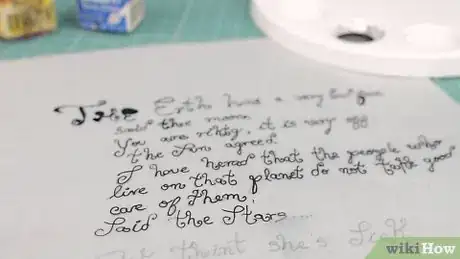 The Erth has a very
said the moon
You are rihtg, it is very
the sun agreed.
I have hered that the people who
live on that planet do not tack good
care of them,
Said the Stars....
I thint she's Sick
wikiHow